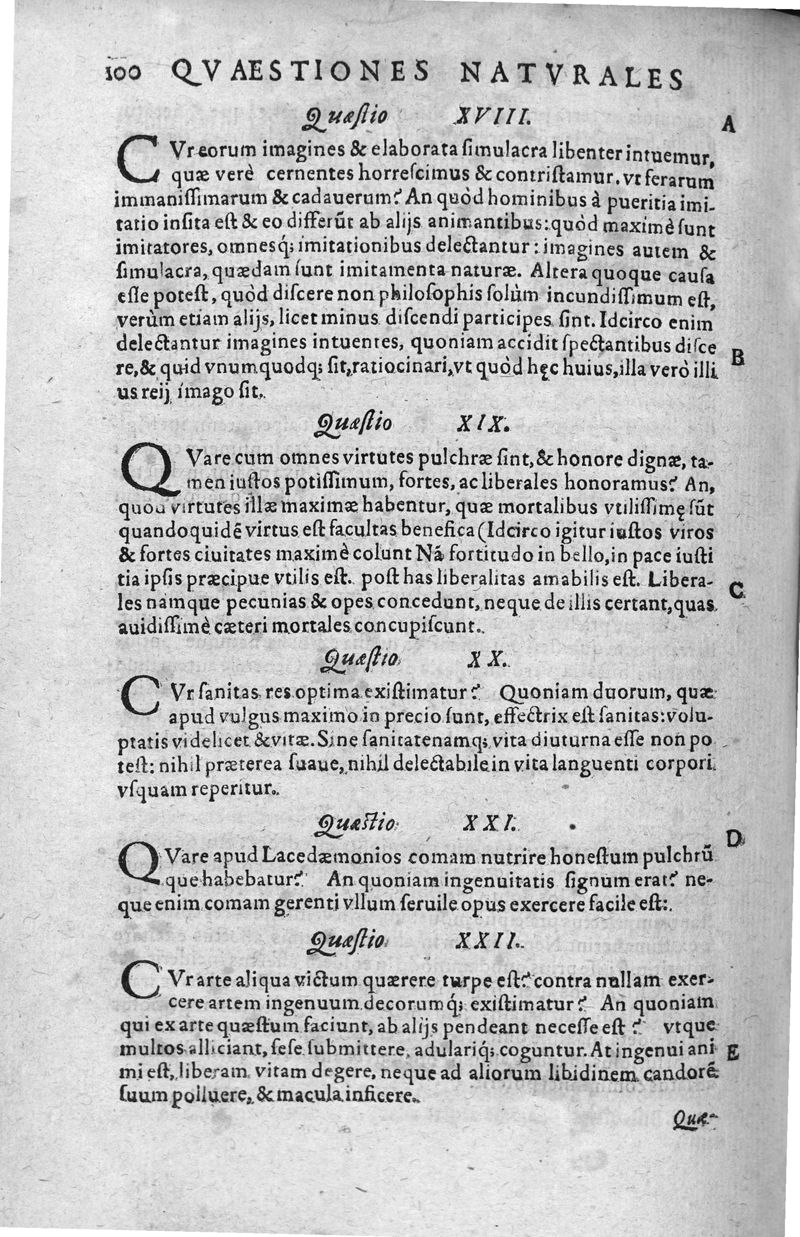 100 QVAESTIONES NATVRALES
Quæſtio XVIII.
A
CVr eorum imagines & elaborata ſimulacra libenter intuemur,
quæ verè cernentes horreſcimus & contriſtamur. vt ferarum
immaniſſimarum & cadauerum? An quòd hominibus à pueritia imi-
tatio inſita eſt & eo differūt ab alijs animantibus: quòd maximè ſunt
imitatores, omnesq́; imitationibus delectantur: imagines autem &
ſimulacra, quædam ſunt imitamenta naturæ. Altera quoque cauſa
eſſe poteſt, quòd diſcere non philoſophis ſolùm incundiſſimum eſt,
verùm etiam alijs, licet minus diſcendi participes ſint. Idcirco enim
delectantur imagines intuentes, quoniam accidit ſpectantibus diſce
B
re, & quid vnumquodq; ſit, ratiocinari, vt quòd hęc huius, illa verò illi
us reij imago ſit.
Quæſtio XIX.
QVare cum omnes virtutes pulchræ ſint, & honore dignæ, ta-
men iuſtos potiſſimum, fortes, ac liberales honoramus? An,
quod virtutes illæ maximæ habentur, quæ mortalibus vtiliſſimę ſūt
quandoquidē virtus eſt facultas benefica (Idcirco igitur iuſtos viros
& fortes ciuitates maximè colunt Nā fortitudo in bello, in pace iuſti
tia ipſis præcipue vtilis eſt. poſt has liberalitas amabilis eſt. Libera-
C
les namque pecunias & opes concedunt, neque de illis certant, quas
auidiſſimè cæteri mortales concupiſcunt.
Quæſtio XX.
CVr ſanitas res optima exiſtimatur? Quoniam duorum, quæ
apud vulgus maximo in precio ſunt, effectrix eſt ſanitas: volu-
ptatis videlicet & vitæ. Sine ſanitate namq; vita diuturna eſſe non po
teſt: nihil præterea ſuaue, nihil delectabile in vita languenti corpori
vſquam reperitur.
Quæſtio XXI.
D
QVare apud Lacedæmonios comam nutrire honeſtum pulchrū
que habebatur? An quoniam ingenuitatis ſignum erat? ne-
que enim comam gerenti vllum ſeruile opus exercere facile eſt:
Quæſtio XXII.
CVr arte aliqua victum quærere turpe eſt? contra nullam exer-
cere artem ingenuum decorumq́; exiſtimatur? An quoniam
qui ex arte quæſtum faciunt, ab alijs pendeant neceſſe eſt? vtque
multos alliciant, ſeſe ſubmittere, adulariq́; coguntur. At ingenui ani
E
mi eſt, liberam vitam degere, neque ad aliorum libidinem candorē
ſuum polluere, & macula inficere.
Quæ-